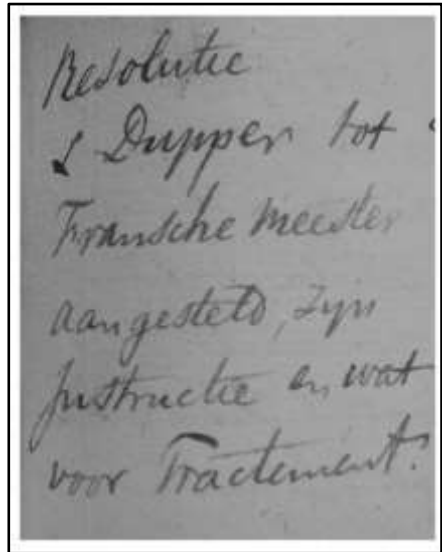 Resolutie
J Dupper tot
Fransche Meester
aangesteld, zyn
Instructie en wat
voor Tractement.